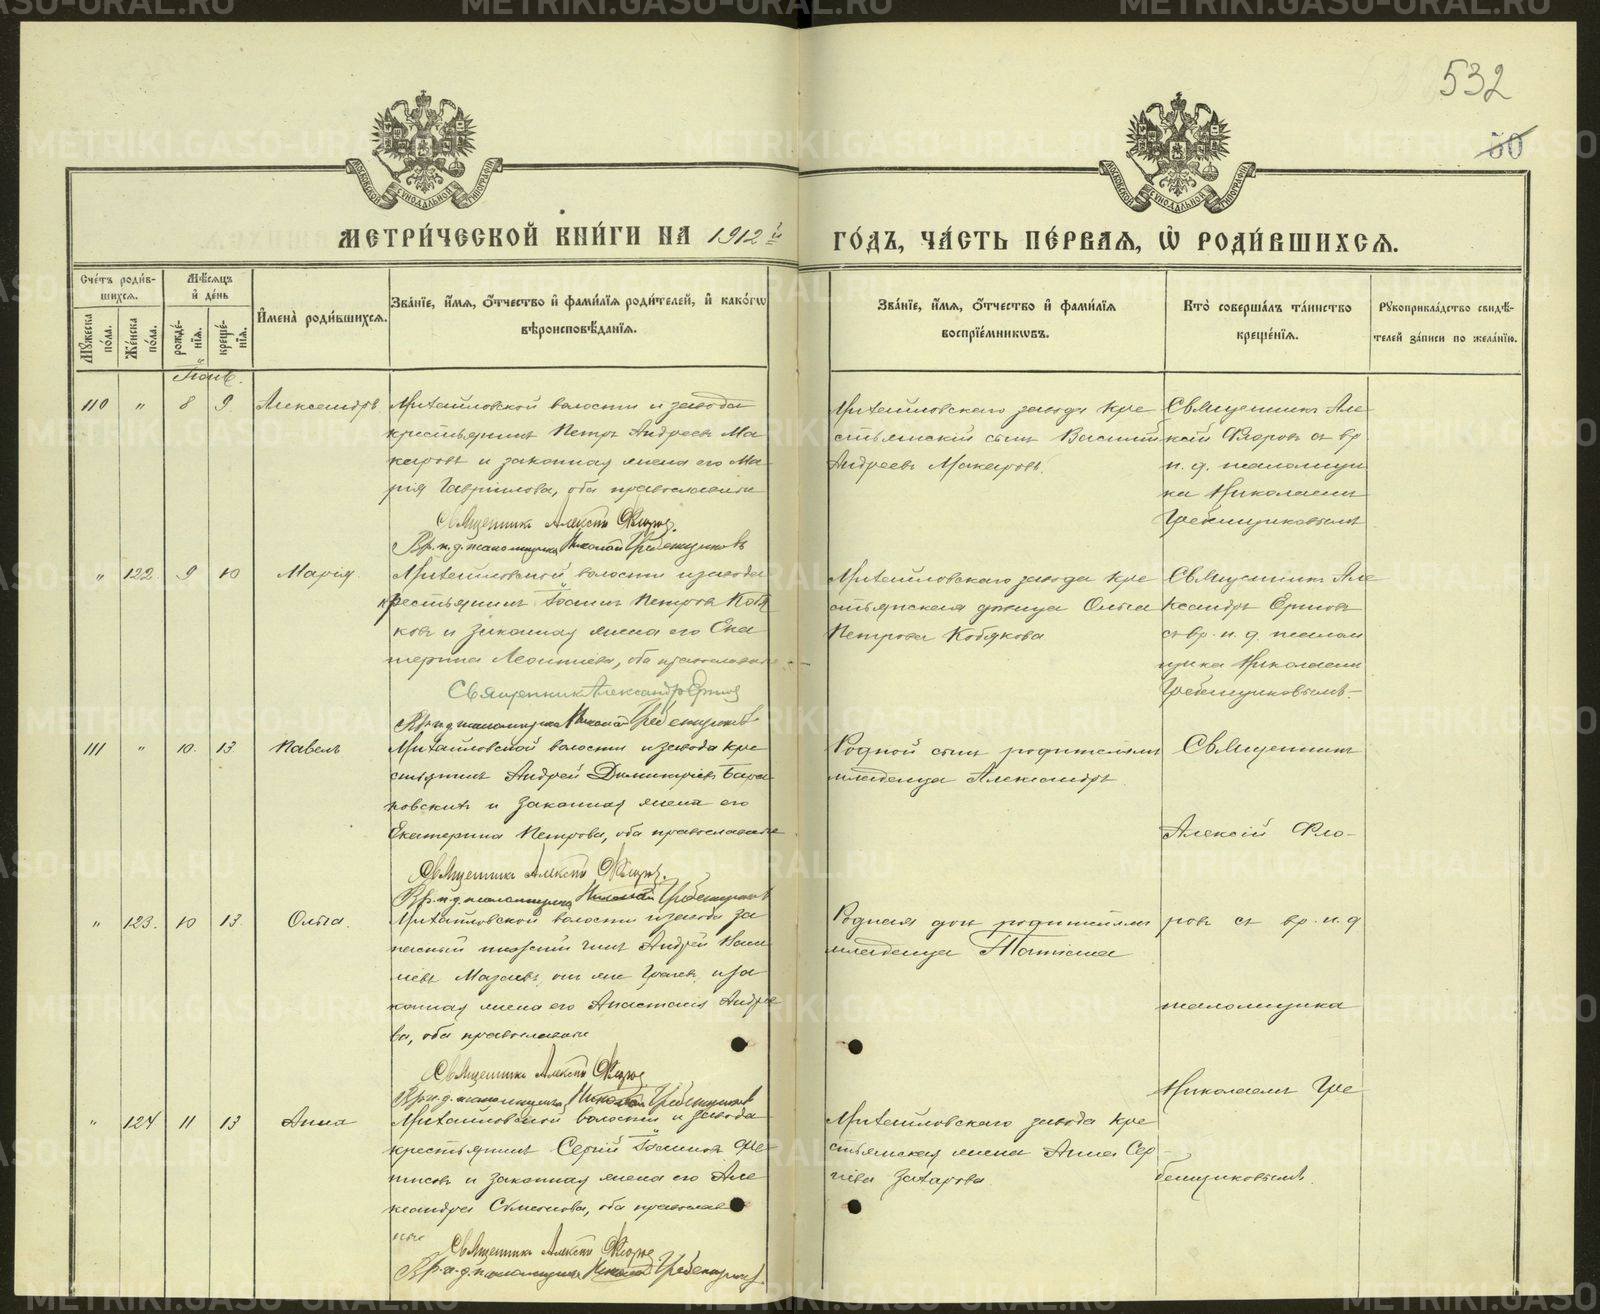 532
50
МЕТРИ́ЧЕСКОЙ КНИ́ГИ НА 1912й ГО́ДЪ, ЧА́СТЬ ПЕ́РВАЯ, Ѡ РОДИ́ВШИХСЯ.
Сче́тъ роди́в-
шихся.
Мꙋ́жеска по́ла.
Же́нска по́ла.
Мѣ́сяцъ
и́ де́нь
рожде́нія.
креще́нія.
И́мена̀ роди́вшихся.
Зва́ніе, и́мя, о́тчество и́ фами́лія роди́телей, и́ како́гѡ
вѣроисповѣ́данія.
Зва́ніе, и́мя, о́тчество и́ фами́лія
воспріе́мниковъ.
Кто̀ соверша́лъ та́инство
креще́нія.
Рꙋкоприкла́дство свидѣ́-
телей за́писи по жела́нію.
Іюнь.
110 " 8 9 Александръ
Михайловской волости и завода
крестьянинъ Петръ Андреевъ Ма-
каровъ и законная жена его Ма-
рія Гавріилова, оба православные
Священникъ Алексій Флоровъ
Вр. и. д. псаломщика Николай Гребенщиковъ
Михайловскаго завода кре-
стьянскій сынъ Василій
Андреевъ Макаровъ.
Священникъ Але-
ксій Флоровъ съ вр.
и. д. псаломщи-
ка Николаемъ
Гребенщиковымъ
" 122 9 10 Марія.
Михайловской волости и завода
крестьянинъ Іоаннъ Петровъ Кобя-
ковъ и законная жена его Ека-
терина Леонтіева, оба православные
Священникъ Александръ Ершовъ
Вр. и. д. псаломщика Николай Гребенщиковъ
Михайловскаго завода кре-
стьянская дѣвица Ольга
Петрова Кобякова
Священникъ Але-
ксандръ Ершовъ
съ вр. и. д. псалом-
щика Николаемъ
Гребенщиковымъ.
111 " 10. 13. Павелъ
Михайловской волости и завода кре-
стьянинъ Андрей Димитріевъ Бара-
новскихъ и законная жена его
Екатерина Петрова, оба православные
Священникъ Алексій Флоровъ.
Вр. и. д. псаломщика Николай Гребенщиковъ
Родной сынъ родителямъ
младенца Александръ.
Священникъ
Алексій Фло-
" 123. 10 13. Ольга.
Михайловской волости и завода за-
пасный нижній чинъ Андрей Васи-
ліевъ Мазаевъ, онъ же Грачевъ, и за-
конная жена его Анастасія Андрее-
ва, оба православные
Священникъ Алексій Флоровъ
Вр. и. д. псаломщика Николай Гребенщиковъ
Родная дочь родителямъ
младенца Татіана
ровъ съ вр. и. д
псаломщика
Николаемъ Гре-
" 124 11 13 Анна
Михайловской волости и завода
крестьянинъ Сергій Іоанновъ Фе-
тисовъ и законная жена его Але-
ксандра Симеонова, оба православ-
ные
Священникъ Алексій Флоровъ
Вр. и. д. псаломщика Николай Гребенщиковъ.
Михайловскаго завода кре-
стьянская жена Анна Сер-
гіева Захарова.
бенщиковымъ.